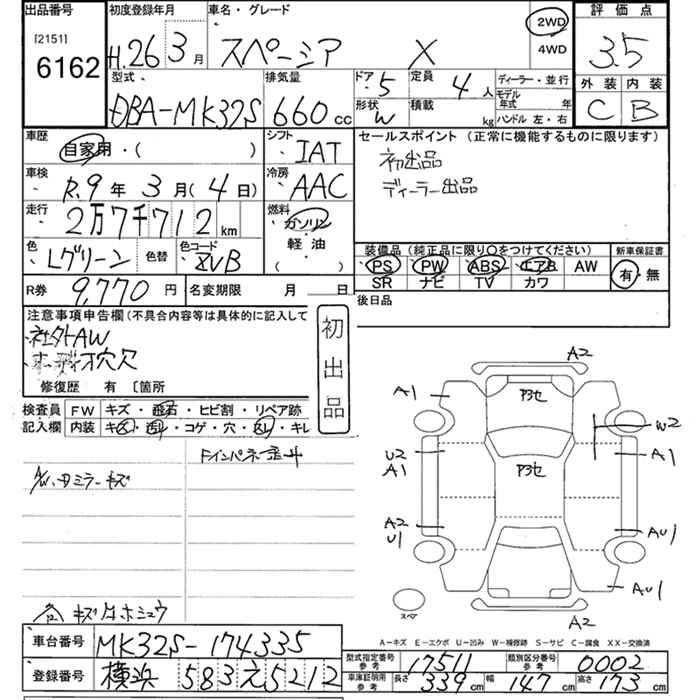 出品番号
[2151]
6162
初度登録年月
H.26 3月
車名・グレード
スペーシア X
2WD
4WD
評価点
3.5
外装 内装
C B
型式
DBA-MK32S
排気量
660 cc
ドア 5
定員 4人
形状 W
積載 kg
ディーラー・並行
モデル年式 年
ハンドル 左・右
車歴
自家用・( )
シフト
IAT
車検
R.9年 3月(4日)
冷房
AAC
走行
2万7千712 km
燃料
ガソリン
軽油
( )
色
Lグリーン
色替
色コード
ZVB
R券 9,770円
名変期限 月 日
セールスポイント(正常に機能するものに限ります)
初出品
ディーラー出品
装備品(純正品に限り〇をつけてください)
PS PW ABS エアB AW
SR ナビ TV カワ
新車保証書
有・無
後日品
注意事項申告欄(不具合内容等は具体的に記入して
社外AW
オーディオ穴
修復歴 有 〔箇所
初出品
検査員記入欄
FW キズ・飛石・ヒビ割・リペア跡
内装 キズ・汚れ・コゲ・穴・スレ・キレ
ミラーキズ
キズ
車台番号 MK32S-174335
登録番号 横浜 583 え 5212
A2
A1
P3セ
W2
U2
A1
A1
P3セ
A2
U1
AU1
AU1
スペア
A2
A-キズ E-エクボ U-凹み W-補修跡 S-サビ C-腐食 XX-交換済
型式指定番号 参考 17511
類別区分番号 参考 0002
車庫証明用 参考 長さ 339 cm 幅 147 cm 高さ 173 cm